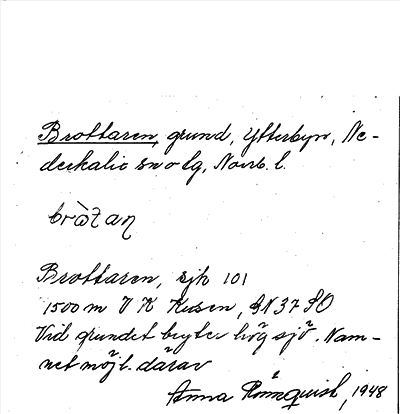 Brottaren, grund, Ytterbyn, Ne-
derkalix sn o lg, Norrb. l.
Brottaren, sjk 101
1500 m V K Kusen, GN 37 SO
Vid grundet bryter hög sjö. Nam-
net möjl. därav
Anna Rönnquist, 1948